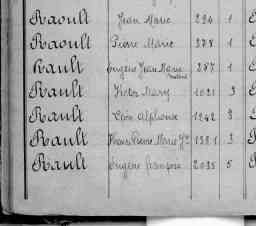 Raoult Jean Marie 294 1
Raoult Pierre Marie 378 1
Rault Eugène Jean Marie 287 1
Rault Victor Mary 1021 3
Rault Léon Alphonse 1242 3
Rault Pierre Marie 1381 3
Rault Eugène François 2035 5